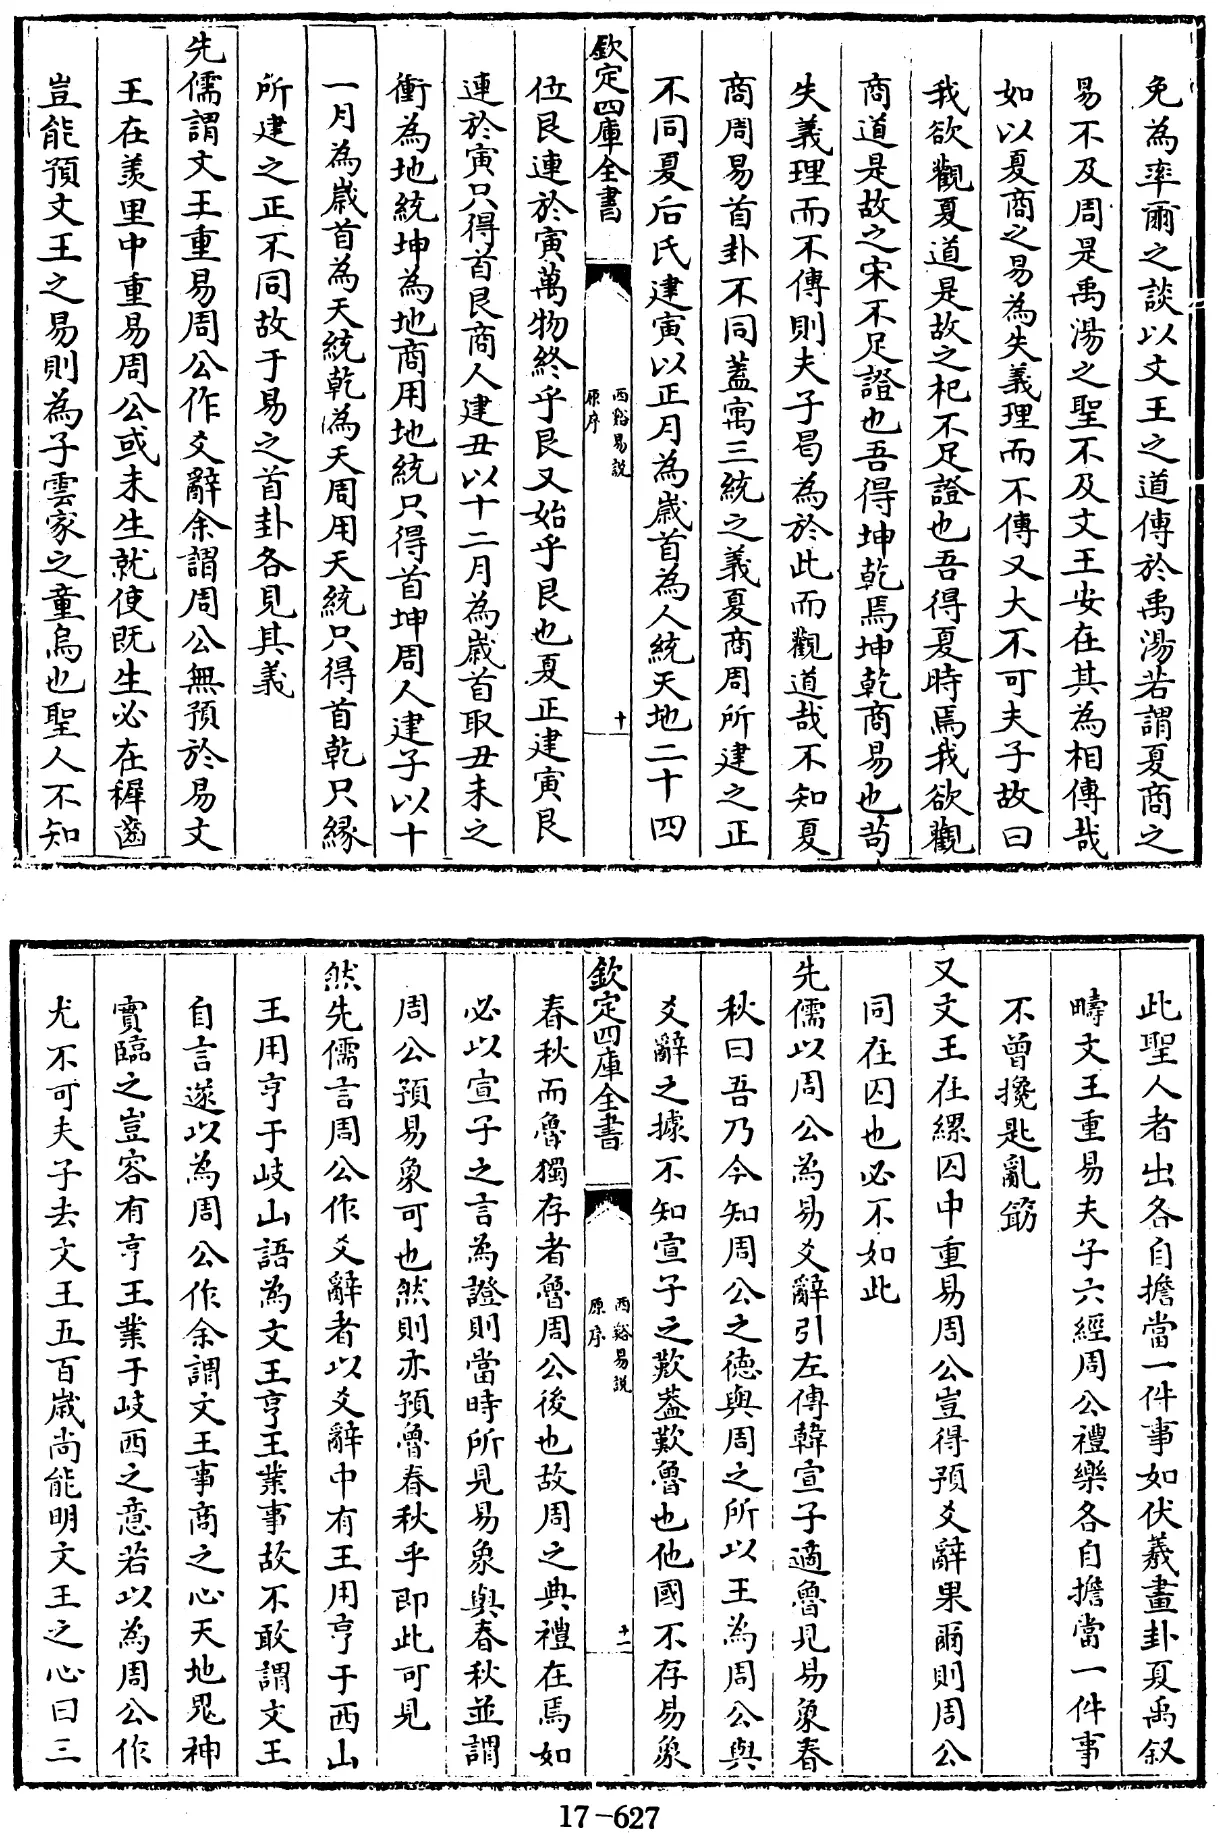 免為率爾之談以文王之道傳於禹湯若謂夏商之
易不及周是禹湯之聖不及文王安在其為相傳哉
如以夏商之易為失義理而不傳又大不可夫子故曰
我欲觀夏道是故之杞不足證也吾得夏時焉我欲觀
商道是故之宋不足證也吾得坤乾焉坤乾商易也苟
失義理而不傳則夫子曷為於此而觀道哉不知夏
商周易首卦不同蓋寓三統之義夏商周所建之正
不同夏后氏建寅以正月為歲首為人統天地二十四
欽定四庫全書
西谿易說
原序
十
位艮連於寅萬物終乎艮又始乎艮也夏正建寅艮
連於寅只得首艮商人建丑以十二月為歲首取丑未之
衝為地統坤為地商用地統只得首坤周人建子以十
一月為歲首為天統乾為天周用天統只得首乾只緣
所建之正不同故于易之首卦各見其義
先儒謂文王重易周公作爻辭余謂周公無預於易文
王在羑里中重易周公或未生就使既生必在穉齒
豈能預文王之易則為子雲家之童烏也聖人不知
此聖人者出各自擔當一件事如伏羲畫卦夏禹叙
疇文王重易夫子六經周公禮樂各自擔當一件事
不曾攙匙亂筯
又文王在縲囚中重易周公豈得預爻辭果爾則周公
同在囚也必不如此
先儒以周公為易爻辭引左傳韓宣子適魯見易象春
秋曰吾乃今知周公之德與周之所以王為周公與
爻辭之據不知宣子之歎蓋歎魯也他國不存易象
欽定四庫全書
西谿易說
原序
十一
春秋而魯獨存者魯周公後也故周之典禮在焉如
必以宣子之言為證則當時所見易象與春秋並謂
周公預易象可也然則亦預魯春秋乎即此可見
然先儒言周公作爻辭者以爻辭中有王用亨于西山
王用亨于岐山語為文王亨王業事故不敢謂文王
自言遂以為周公作余謂文王事商之心天地鬼神
實臨之豈容有亨王業于岐西之意若以為周公作
尤不可夫子去文王五百歲尚能明文王之心曰三
17-627